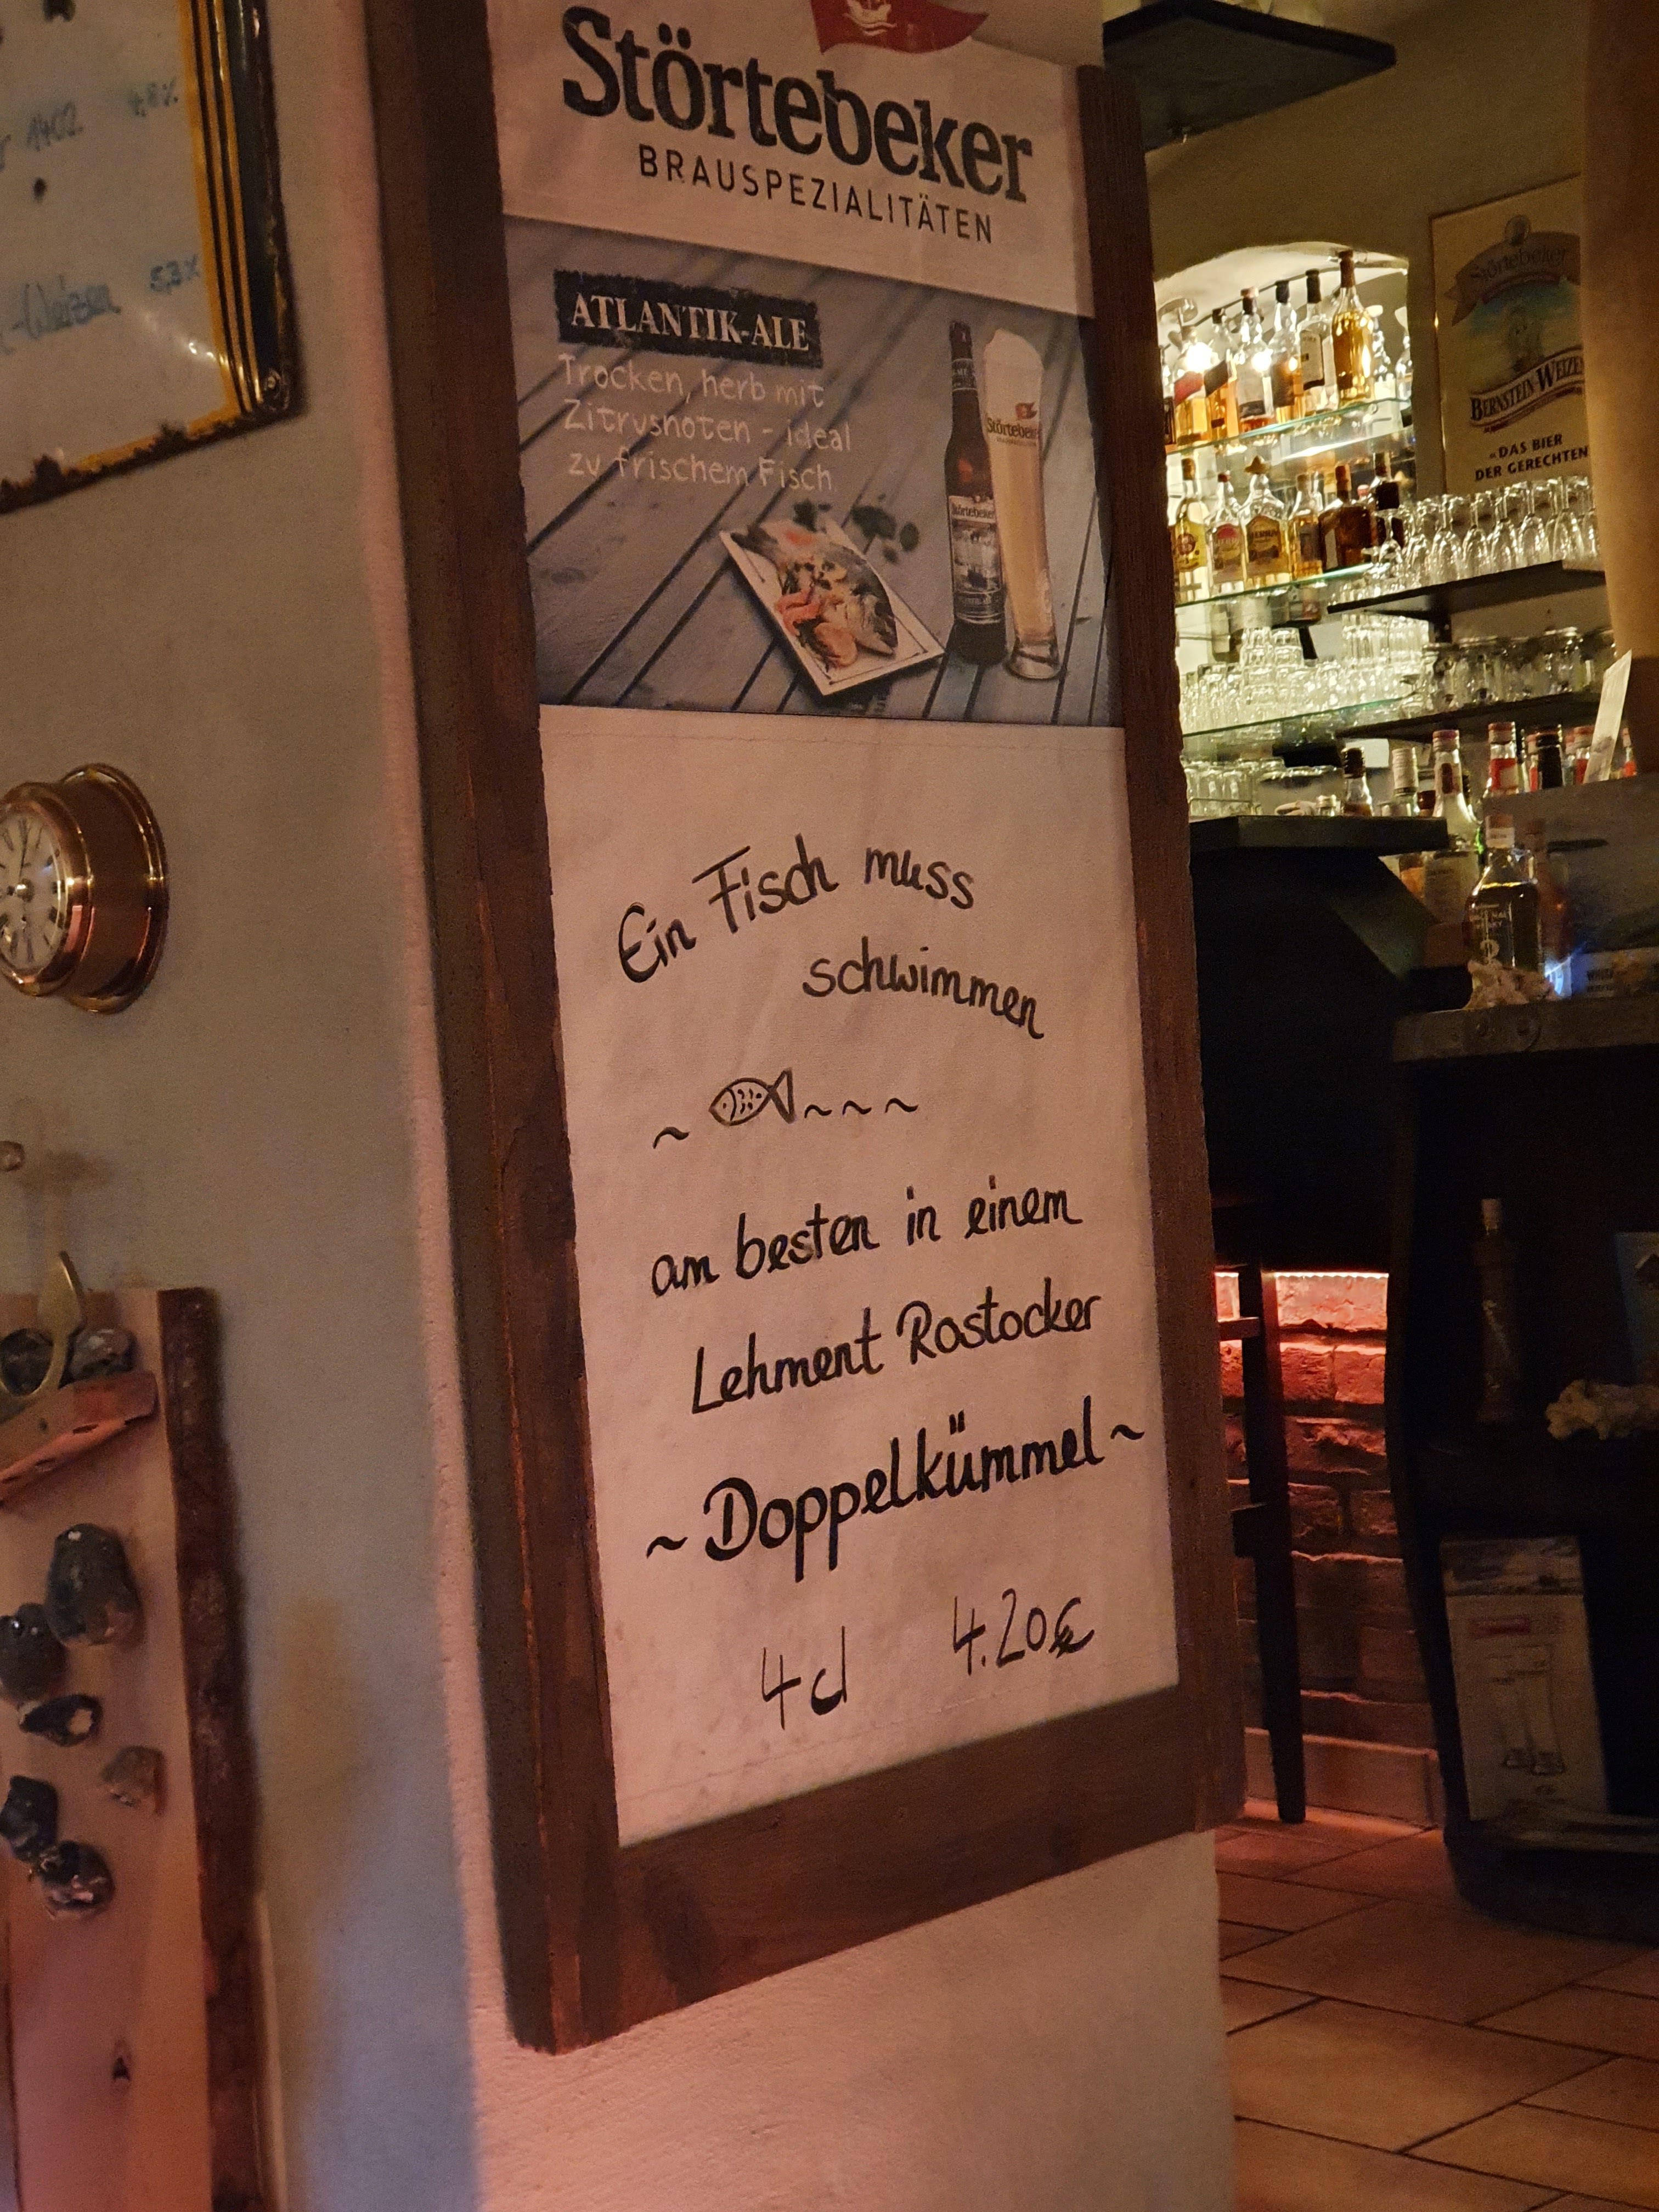 1402 4,8%
-Weizen 5,3%
Störtebeker
BRAUSPEZIALITÄTEN
ATLANTIK-ALE
Trocken, herb mit
Zitrusnoten - ideal
zu frischem Fisch
Störtebeker
Störtebeker
Ein Fisch muss
schwimmen
~ ~ ~ ~
am besten in einem
Lehment Rostocker
~ Doppelkümmel ~
4cl 4.20€
Störtebeker
BERNSTEIN-WEIZEN
„DAS BIER
DER GERECHTEN